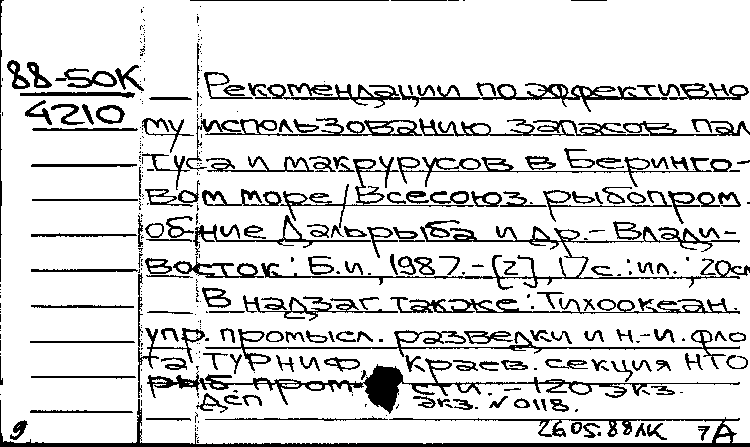 88-50К
4210
Рекомендации по эффективно
му использованию запасов пал
туса и макрурусов в Беринго-
вом море / Всесоюз. рыбопром.
об-ние Дальрыба и др.- Влади-
восток: Б.и., 1987.-[2], 17с.:ил.; 20см
В надзаг. также: Тихоокеан.
упр. промысл. разведки и н.-и. фло
та ТУРНИФ, Краев. секция НТО
рыб. пром-сти. - 120 экз.
ДСП экз. №0118.
9 26.05.88 ЛК 7А